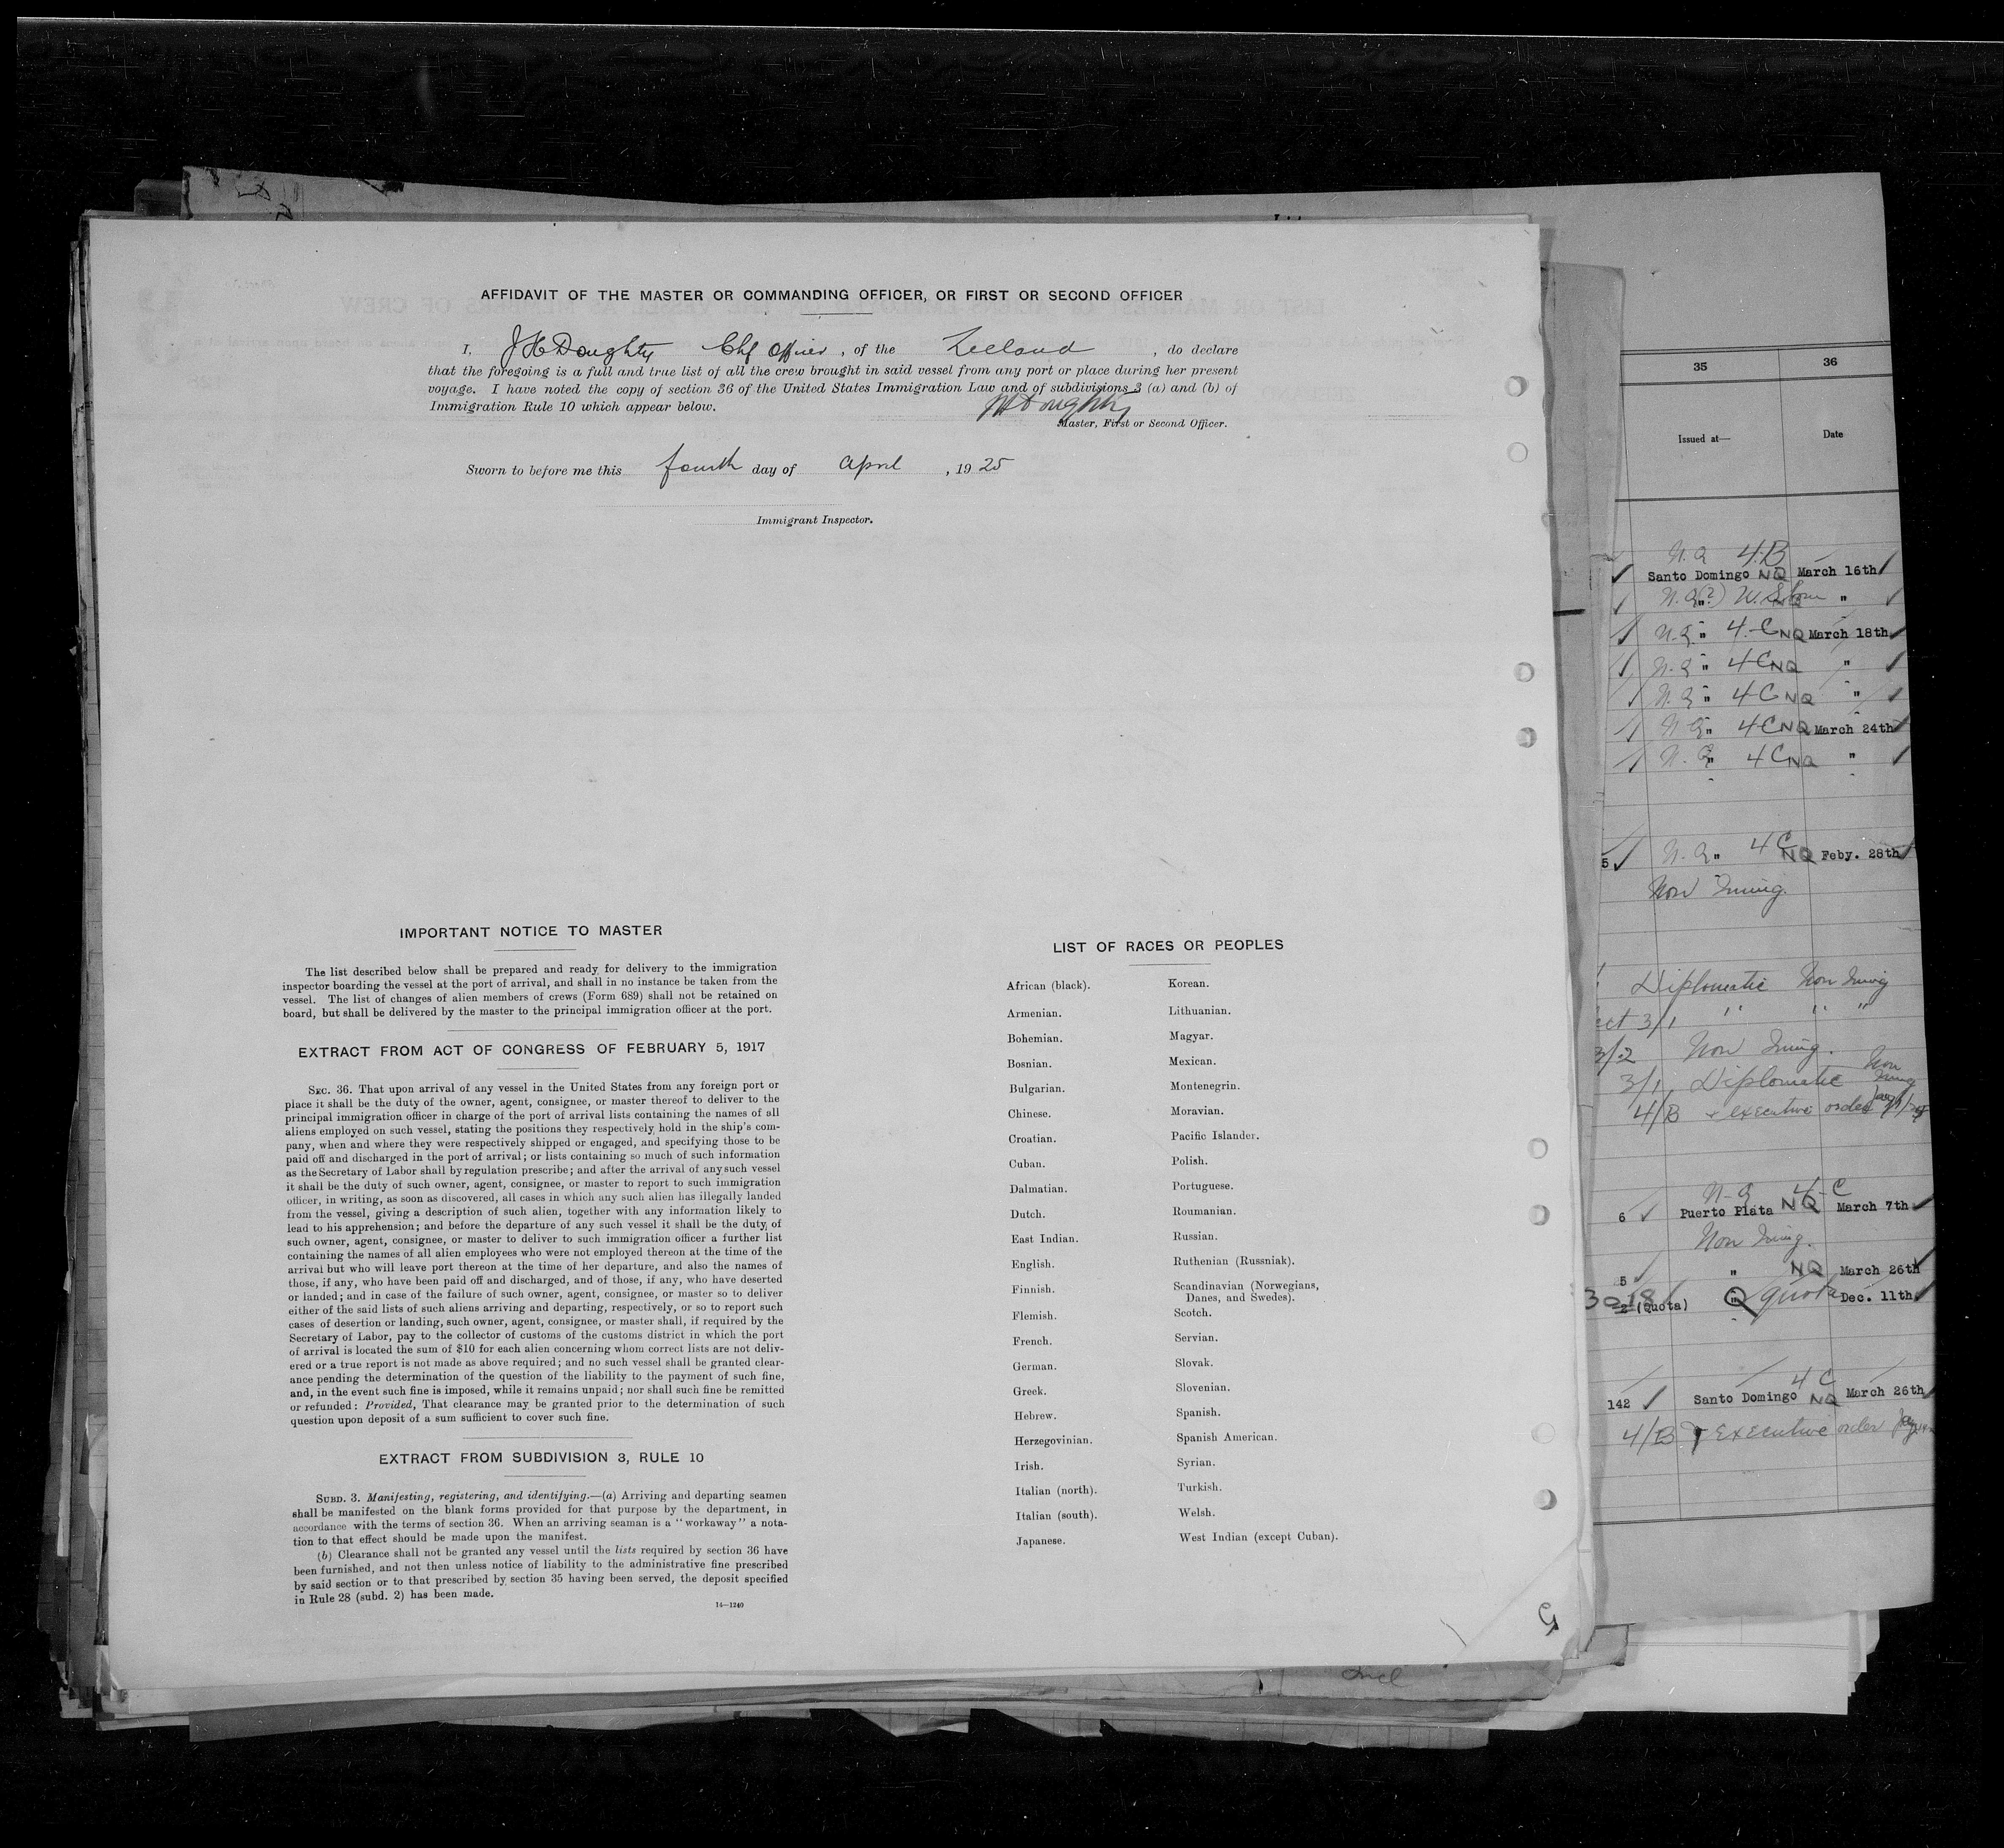 AFFIDAVIT OF THE MASTER OR COMMANDING OFFICER, OR FIRST OR SECOND OFFICER
I, J H Doughty Chf Officer, of the Zeeland, do declare
that the foregoing is a full and true list of all the crew brought in said vessel from any port or place during her present
voyage. I have noted the copy of section 36 of the United States Immigration Law and of subdivisions 3 (a) and (b) of
Immigration Rule 10 which appear below.
JH Doughty
Master, First or Second Officer.
Sworn to before me this fourth day of April, 1925
Immigrant Inspector.
IMPORTANT NOTICE TO MASTER
The list described below shall be prepared and ready for delivery to the immigration
inspector boarding the vessel at the port of arrival, and shall in no instance be taken from the
vessel. The list of changes of alien members of crews (Form 689) shall not be retained on
board, but shall be delivered by the master to the principal immigration officer at the port.
EXTRACT FROM ACT OF CONGRESS OF FEBRUARY 5, 1917
SEC. 36. That upon arrival of any vessel in the United States from any foreign port or
place it shall be the duty of the owner, agent, consignee, or master thereof to deliver to the
principal immigration officer in charge of the port of arrival lists containing the names of all
aliens employed on such vessel, stating the positions they respectively hold in the ship's com-
pany, when and where they were respectively shipped or engaged, and specifying those to be
paid off and discharged in the port of arrival; or lists containing so much of such information
as the Secretary of Labor shall by regulation prescribe; and after the arrival of any such vessel
it shall be the duty of such owner, agent, consignee, or master to report to such immigration
officer, in writing, as soon as discovered, all cases in which any such alien has illegally landed
from the vessel, giving a description of such alien, together with any information likely to
lead to his apprehension; and before the departure of any such vessel it shall be the duty of
such owner, agent, consignee, or master to deliver to such immigration officer a further list
containing the names of all alien employees who were not employed thereon at the time of the
arrival but who will leave port thereon at the time of her departure, and also the names of
those, if any, who have been paid off and discharged, and of those, if any, who have deserted
or landed; and in case of the failure of such owner, agent, consignee, or master so to deliver
either of the said lists of such aliens arriving and departing, respectively, or so to report such
cases of desertion or landing, such owner, agent, consignee, or master shall, if required by the
Secretary of Labor, pay to the collector of customs of the customs district in which the port
of arrival is located the sum of $10 for each alien concerning whom correct lists are not deliv-
ered or a true report is not made as above required; and no such vessel shall be granted clear-
ance pending the determination of the question of the liability to the payment of such fine,
and, in the event such fine is imposed, while it remains unpaid; nor shall such fine be remitted
or refunded: Provided, That clearance may be granted prior to the determination of such
question upon deposit of a sum sufficient to cover such fine.
EXTRACT FROM SUBDIVISION 3, RULE 10
SUBD. 3. Manifesting, registering, and identifying.—(a) Arriving and departing seamen
shall be manifested on the blank forms provided for that purpose by the department, in
accordance with the terms of section 36. When an arriving seaman is a "workaway" a nota-
tion to that effect should be made upon the manifest.
(b) Clearance shall not be granted any vessel until the lists required by section 36 have
been furnished, and not then unless notice of liability to the administrative fine prescribed
by said section or to that prescribed by section 35 having been served, the deposit specified
in Rule 28 (subd. 2) has been made.
14—1240
LIST OF RACES OR PEOPLES
African (black).
Armenian.
Bohemian.
Bosnian.
Bulgarian.
Chinese.
Croatian.
Cuban.
Dalmatian.
Dutch.
East Indian.
English.
Finnish.
Flemish.
French.
German.
Greek.
Hebrew.
Herzegovinian.
Irish.
Italian (north).
Italian (south).
Japanese.
Korean.
Lithuanian.
Magyar.
Mexican.
Montenegrin.
Moravian.
Pacific Islander.
Polish.
Portuguese.
Roumanian.
Russian.
Ruthenian (Russniak).
Scandinavian (Norwegians,
Danes, and Swedes).
Scotch.
Servian.
Slovak.
Slovenian.
Spanish.
Spanish American.
Syrian.
Turkish.
Welsh.
West Indian (except Cuban).
5
35 36
Issued at— Date
N.Q 4.B
Santo Domingo NQ March 16th
" "
N.Q " 4-C NQ March 18th
N.Q " 4C NQ "
N.Q " 4C NQ "
N.Q " 4C NQ March 24th
N.Q " 4C NQ "
5 N.Q " 4C NQ Feby. 28th
Non Immig.
Diplomatic Non Immig
3/1 " " "
3/2 Non Immig.
3/1 Diplomatic Non Immig
4/B executive order
N-Q 4-C
6 Puerto Plata NQ March 7th
Non Immig.
5 " NQ March 26th
2 (Quota) " Q quota Dec. 11th
4 C
142 Santo Domingo NQ March 26th
4/B executive order